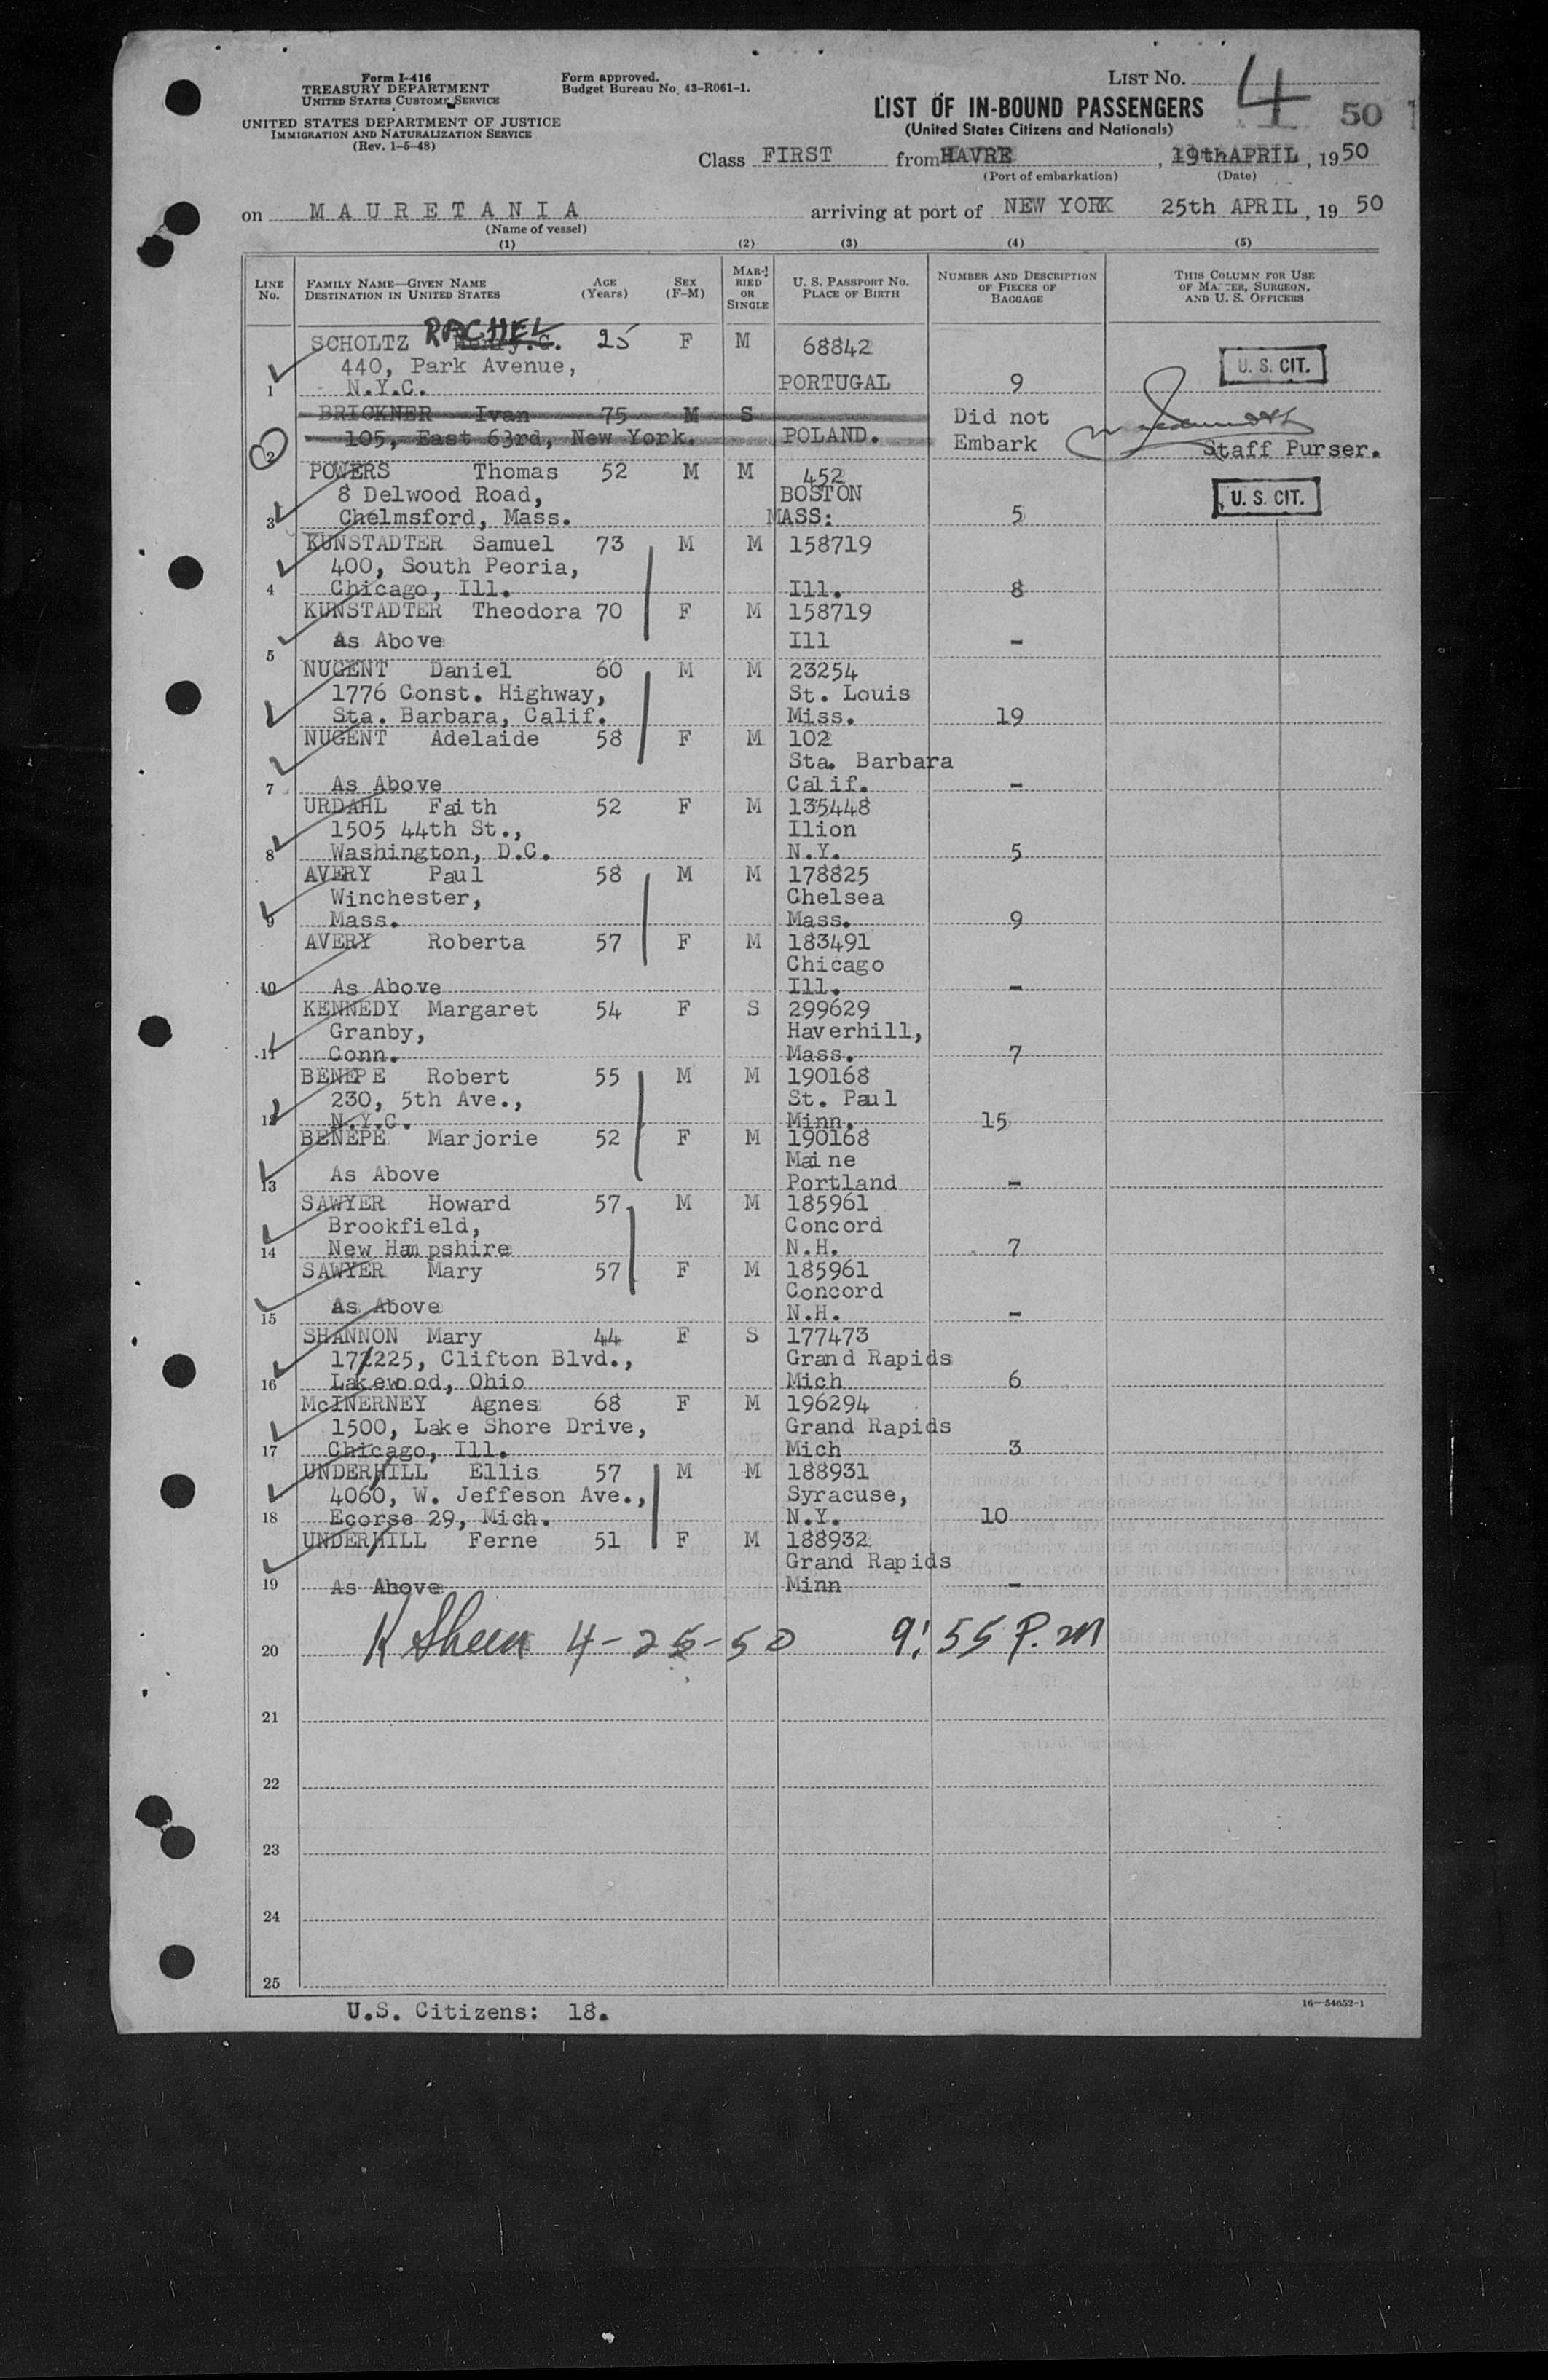 Form I-416
TREASURY DEPARTMENT
UNITED STATES CUSTOMS SERVICE
UNITED STATES DEPARTMENT OF JUSTICE
IMMIGRATION AND NATURALIZATION SERVICE
(Rev. 1-5-48)
Form approved.
Budget Bureau No. 43-R061-1.
LIST NO. 4
50
LIST OF IN-BOUND PASSENGERS
(United States Citizens and Nationals)
Class FIRST from HAVRE, 19th APRIL, 1950
(Port of embarkation) (Date)
on MAURETANIA arriving at port of NEW YORK 25th APRIL, 19 50
(Name of vessel)
(1) (2) (3) (4) (5)
LINE NO.
FAMILY NAME—GIVEN NAME
DESTINATION IN UNITED STATES
AGE (Years)
SEX (F-M)
MARRIED OR SINGLE
U. S. PASSPORT NO.
PLACE OF BIRTH
NUMBER AND DESCRIPTION OF PIECES OF BAGGAGE
THIS COLUMN FOR USE OF MASTER, SURGEON, AND U. S. OFFICERS
SCHOLTZ RACHEL 25 F M 68842
440, Park Avenue,
1 N.Y.C. PORTUGAL 9 U. S. CIT.
BRICKNER Ivan 75 M S Did not
2 105, East 63rd, New York. POLAND. Embark Staff Purser.
POWERS Thomas 52 M M 452
8 Delwood Road, BOSTON
3 Chelmsford, Mass. MASS: 5 U. S. CIT.
KUNSTADTER Samuel 73 M M 158719
400, South Peoria,
4 Chicago, Ill. Ill. 8
KUNSTADTER Theodora 70 F M 158719
5 As Above Ill -
NUGENT Daniel 60 M M 23254
1776 Const. Highway, St. Louis
Sta. Barbara, Calif. Miss. 19
NUGENT Adelaide 58 F M 102
Sta. Barbara
7 As Above Calif. -
URDAHL Faith 52 F M 135448
1505 44th St., Ilion
8 Washington, D.C. N.Y. 5
AVERY Paul 58 M M 178825
Winchester, Chelsea
9 Mass. Mass. 9
AVERY Roberta 57 F M 183491
Chicago
10 As Above Ill. -
KENNEDY Margaret 54 F S 299629
Granby, Haverhill,
11 Conn. Mass. 7
BENEPE Robert 55 M M 190168
230, 5th Ave., St. Paul
12 N.Y.C. Minn. 15
BENEPE Marjorie 52 F M 190168
Maine
13 As Above Portland -
SAWYER Howard 57 M M 185961
Brookfield, Concord
14 New Hampshire N.H. 7
SAWYER Mary 57 F M 185961
Concord
15 As Above N.H. -
SHANNON Mary 44 F S 177473
177225, Clifton Blvd., Grand Rapids
16 Lakewood, Ohio Mich 6
McINERNEY Agnes 68 F M 196294
1500, Lake Shore Drive, Grand Rapids
17 Chicago, Ill. Mich 3
UNDERHILL Ellis 57 M M 188931
4060, W. Jeffeson Ave., Syracuse,
18 Ecorse 29, Mich. N.Y. 10
UNDERHILL Ferne 51 F M 188932
Grand Rapids
19 As Above Minn -
20 4-25-50 9:55 P.M
21
22
23
24
25
U.S. Citizens: 18.
16—54652-1